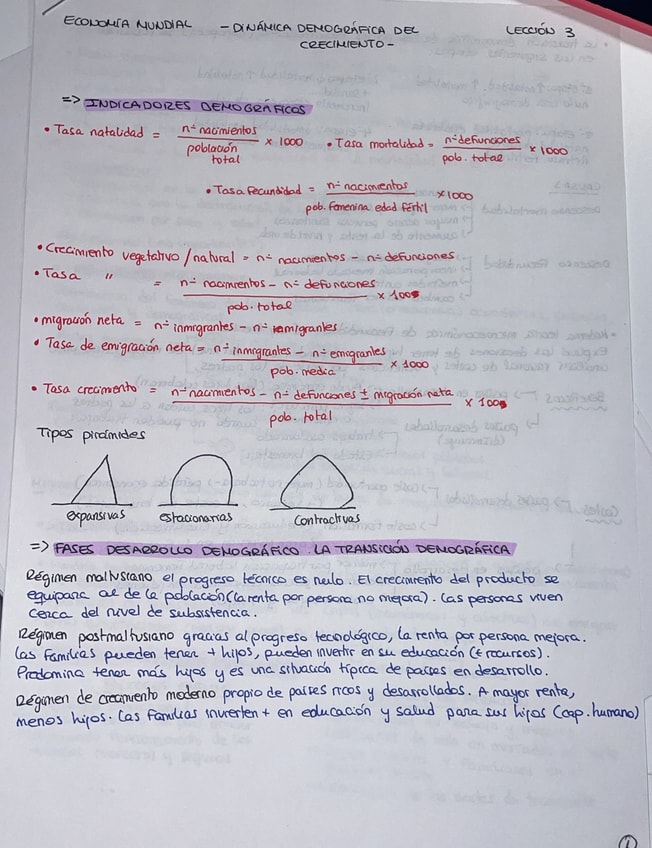 ECONOMÍA MUNDIAL - DINÁMICA DEMOGRÁFICA DEL CRECIMIENTO - LECCIÓN 3
=> INDICADORES DEMOGRÁFICOS
• Tasa natalidad = nº nacimientos / población total x 1000 • Tasa mortalidad = nº defunciones / pob. total x 1000
• Tasa fecundidad = nº nacimientos / pob. femenina edad fértil x 1000
• Crecimiento vegetativo / natural = nº nacimientos - nº defunciones
• Tasa " = nº nacimientos - nº defunciones / pob. total x 100
• migración neta = nº inmigrantes - nº emigrantes
• Tasa de emigración neta = nº inmigrantes - nº emigrantes / pob. media x 1000
• Tasa crecimiento = nº nacimientos - nº defunciones ± migración neta / pob. total x 100
Tipos pirámides
expansivas estacionarias contractivas
=> FASES DESARROLLO DEMOGRÁFICO. LA TRANSICIÓN DEMOGRÁFICA
Régimen maltusiano el progreso técnico es nulo. El crecimiento del producto se
equipara al de la población (la renta por persona no mejora). Las personas viven
cerca del nivel de subsistencia.
Régimen postmaltusiano gracias al progreso tecnológico, la renta por persona mejora.
Las familias pueden tener + hijos, pueden invertir en su educación (+ recursos).
Predomina tener más hijos y es una situación típica de países en desarrollo.
Régimen de crecimiento moderno propio de países ricos y desarrollados. A mayor renta,
menos hijos. Las familias invierten + en educación y salud para sus hijos (cap. humano)
1